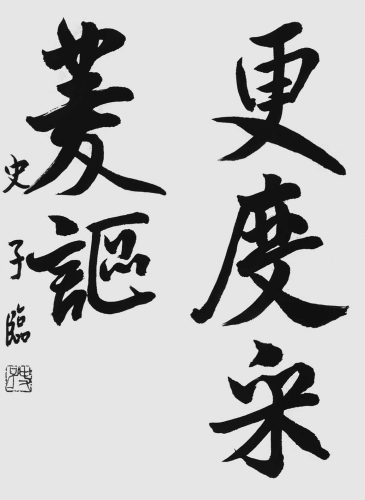 更度采
菱謳
史子臨